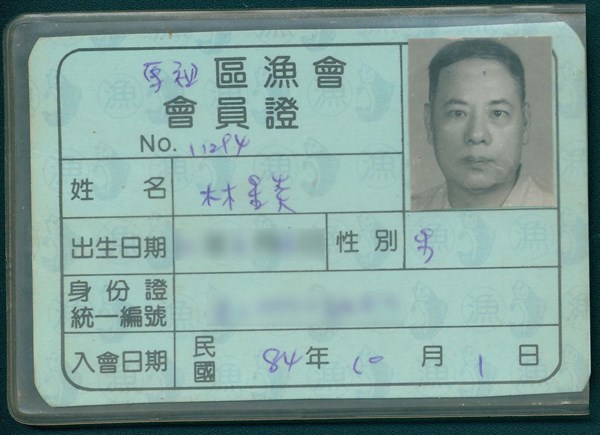 馬祖 區漁會
會員證
No.
姓名 林
出生日期 性別 男
身份證
統一編號
入會日期 民國 84年 10月 1日